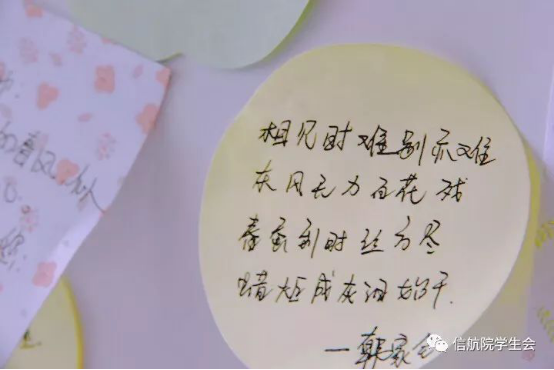 春风
相见时难别亦难
东风无力百花残
春蚕到时丝方尽
蜡炬成灰泪始干.
—韩家
信航院学生会